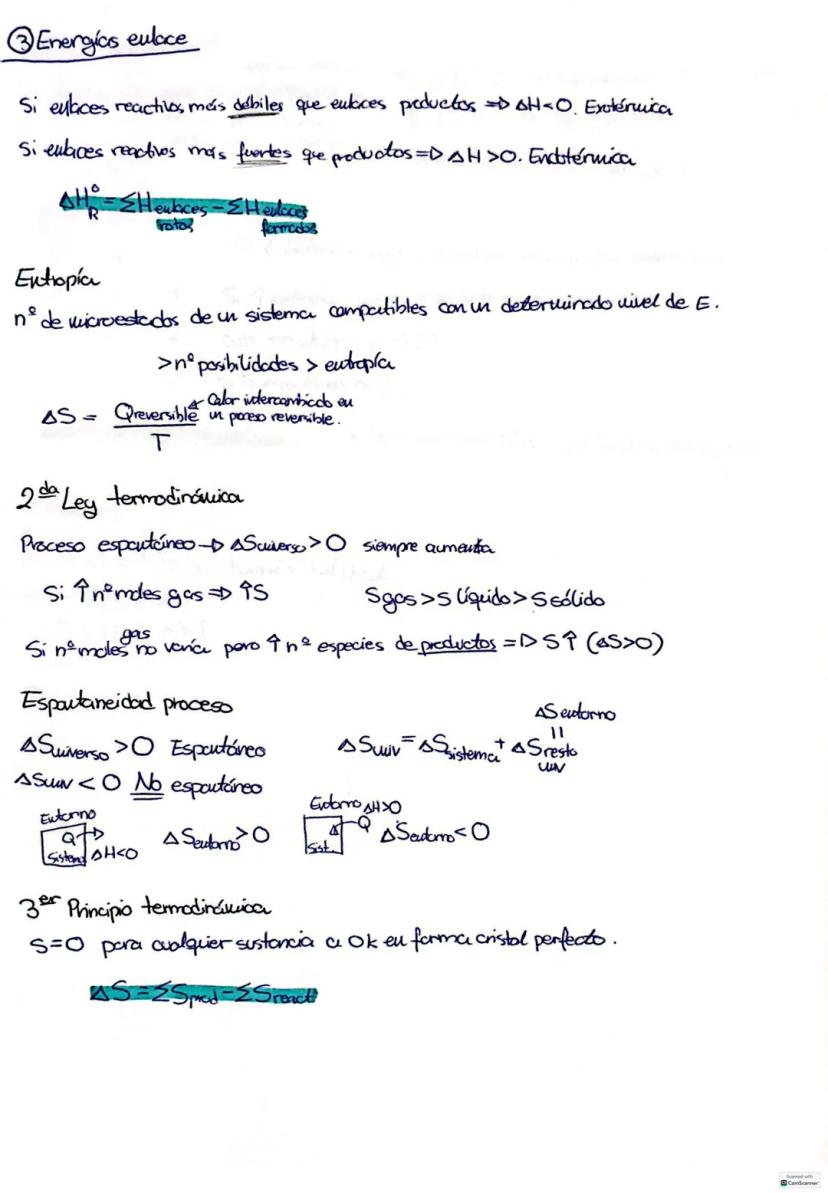 ③ Energías enlace
Si enlaces reactivos más débiles que enlaces productos ⇒ ΔH<0. Exotérmica
Si enlaces reactivos más fuertes que productos ⇒ ΔH>0. Endotérmica
ΔH°R = ΣH enlaces rotos - ΣH enlaces formados
Entropía
nº de microestados de un sistema compatibles con un determinado nivel de E.
>nº posibilidades > entropía
ΔS = Qreversible / T ← Calor intercambiado en un proceso reversible.
2da Ley termodinámica
Proceso espontáneo → ΔSuniverso>0 siempre aumenta
Si ↑nº moles gas ⇒ ↑S Sgas>S líquido>S sólido
Si nº moles gas no varía pero ↑ nº especies de productos ⇒ S↑ (ΔS>0)
Espontaneidad proceso
ΔSuniverso >0 Espontáneo ΔSuniv = ΔSsistema + ΔSresto univ = ΔSentorno
ΔSuniv < 0 No espontáneo
Entorno Q→ Sistema ΔH<0 ΔSentorno>0 Entorno ΔH>0 Q Sist. ΔSentorno<0
3er Principio termodinámica
S=0 para cualquier sustancia a 0k en forma cristal perfecto.
ΔS = ΣSprod - ΣSreact
Scanned with
CamScanner